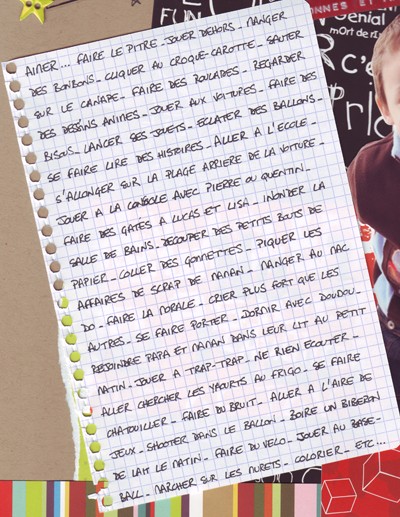 FUN
Génial
mORt de rire
C'e
AIMER... FAIRE LE PITRE_ JOUER DEHORS_ MANGER
DES BONBONS_ CLIQUER AU CROQUE-CAROTTE_ SAUTER
SUR LE CANAPE_ FAIRE DES ROULADES_ REGARDER
DES DESSINS ANIMES_ JOUER AUX VOITURES_ FAIRE DES
BISOUS_ LANCER SES JOUETS_ ECLATER DES BALLONS_
SE FAIRE LIRE DES HISTOIRES_ ALLER A L'ECOLE_
S'ALLONGER SUR LA PLAGE ARRIERE DE LA VOITURE_
JOUER A LA CONSOLE AVEC PIERRE OU QUENTIN_
FAIRE DES GATÉS A LUCAS ET LISA_ INONDER LA
SALLE DE BAINS_ DECOUPER DES PETITS BOUTS DE
PAPIER_ COLLER DES GOMETTES_ PIQUER LES
AFFAIRES DE SCRAP DE MAMAN_ MANGER AU MAC
DO_ FAIRE LA MORALE_ CRIER PLUS FORT QUE LES
AUTRES_ SE FAIRE PORTER_ DORMIR AVEC DOUDOU_
REJOINDRE PAPA ET MAMAN DANS LEUR LIT AU PETIT
MATIN_ JOUER A TRAP-TRAP_ NE RIEN ECOUTER_
ALLER CHERCHER LES YAOURTS AU FRIGO_ SE FAIRE
CHATOUILLER_ FAIRE DU BRUIT_ ALLER A L'AIRE DE
JEUX_ SHOOTER DANS LE BALLON_ BOIRE UN BIBERON
DE LAIT LE MATIN_ FAIRE DU VELO_ JOUER AU BASE-
BALL_ MARCHER SUR LES MURETS_ COLORIER_ ETC...